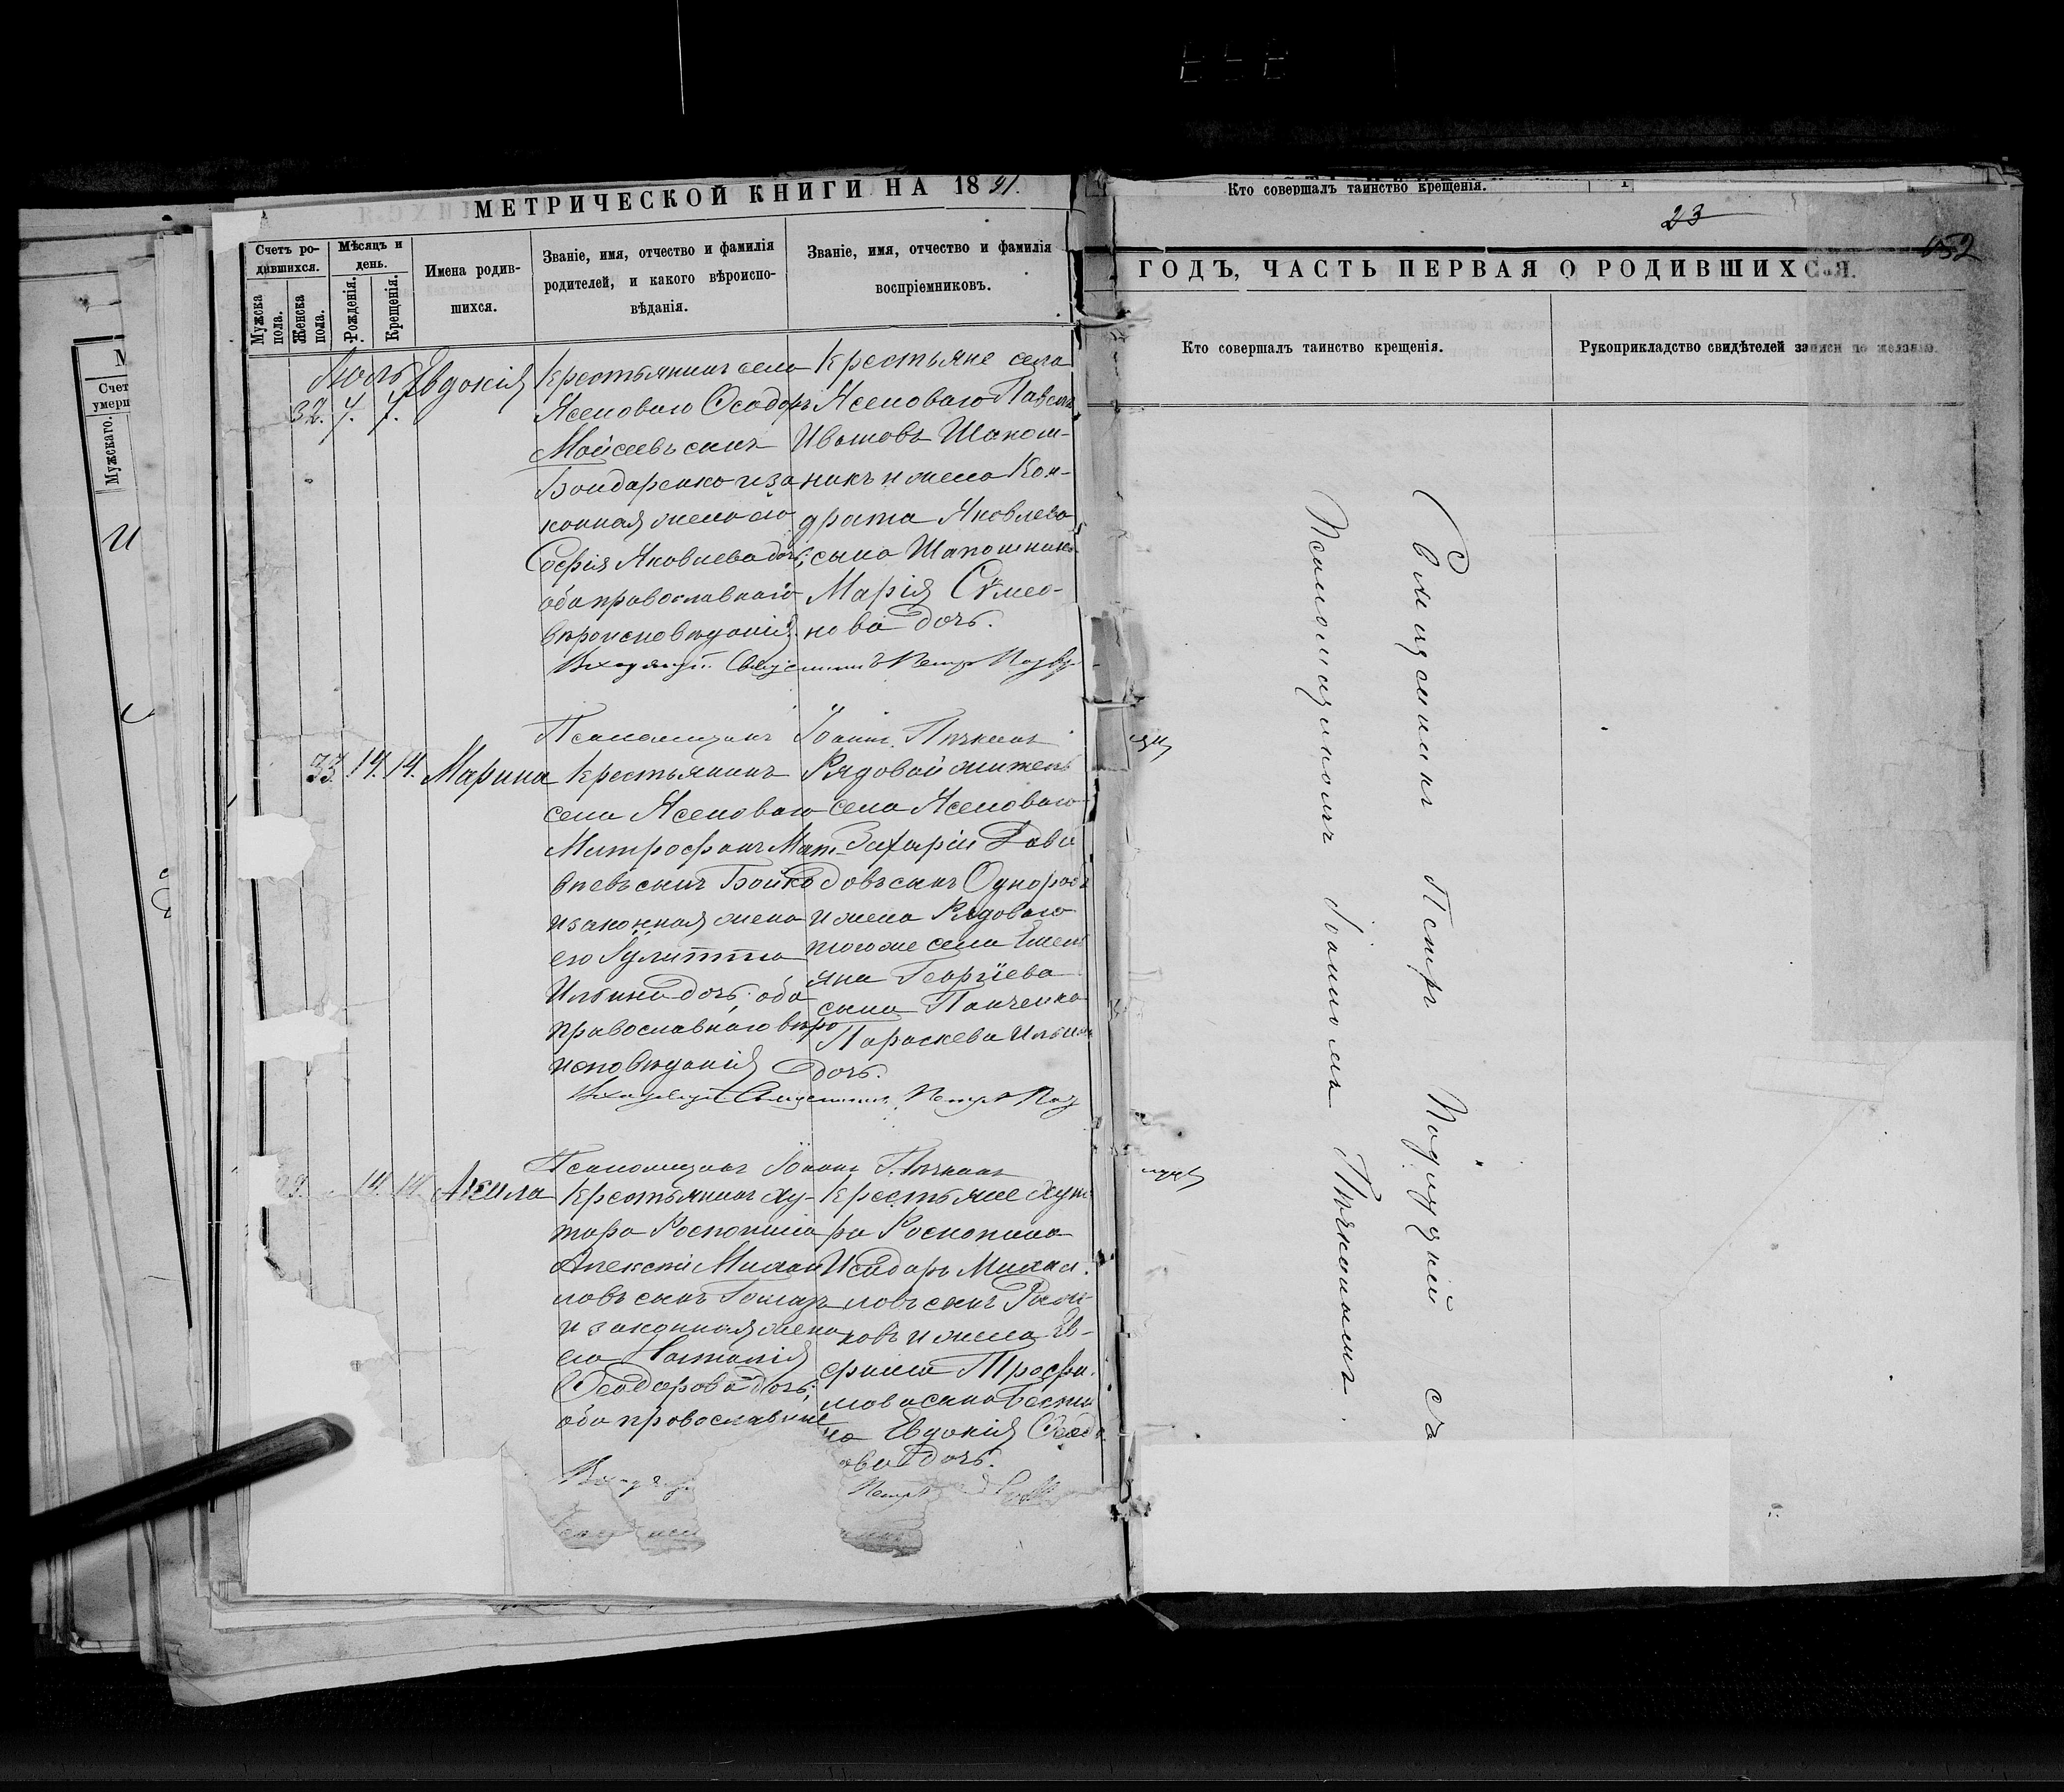 МЕТРИЧЕСКОЙ КНИГИ НА 1891.
Счетъ ро-
дившихся.
Мужска
пола.
Женска
пола.
Мѣсяцъ и
день.
Рожденія.
Крещенія.
Имена родив-
шихся.
Званіе, имя, отчество и фамилія
родителей, и какого вѣроиспо-
вѣданія.
Званіе, имя, отчество и фамилія
воспріемниковъ.
Іюль
32. 7. 7.
Евдокія
Крестьянинъ села
Ясеноваго Ѳеодоръ
Мойсеевъ сынъ
Бондаренко и за
конная жена его
Софія Яковлева дочь;
оба православнаго
вѣроисповѣданія.
Крестьяне села
Ясеноваго Павелъ
Ивановъ Шапош-
никъ и жена Кон-
драта Яковлева
сына Шапошник
Марія Сѵмео-
нова дочь.
Священникъ Петръ
Псаломщикъ Іоаннъ
33. 14. 14. Марина
Крестьянинъ
села Ясеноваго
Митрофанъ Мат-
вѣевъ сынъ Бойко
и законная жена
его Іулитта
Ильина дочь оба
православнаго вѣро
исповѣданія
Рядовой житель
села Ясеноваго
Захарій Дави
довъ сынъ Однород
и жена Рядоваго
тогоже села Емель
яна Георгіева
сына Панченка
Параскева Ильина
дочь.
Священникъ Петръ
Псаломщикъ Іоаннъ
14. 14. Акила
Крестьянинъ ху-
тора
Алексій Михаи
ловъ сынъ
и законная жена
его Наталія
Ѳеодорова дочь;
оба православные
Крестьяне хуто
ра
Исидоръ Михаи
ловъ сынъ
ковъ и жена Ев-
фима Трофи
мова сына
Евдокія Ѳеодо
рова дочь.
Петръ
Кто совершалъ таинство крещенія.
23
652
ГОДЪ, ЧАСТЬ ПЕРВАЯ О РОДИВШИХСЯ.
Кто совершалъ таинство крещенія.
Рукоприкладство свидѣтелей записи по желанію.
Священникъ Петръ съ
Псаломщикомъ Іоанномъ
М
Счет
умерш
Мужскаго.
И